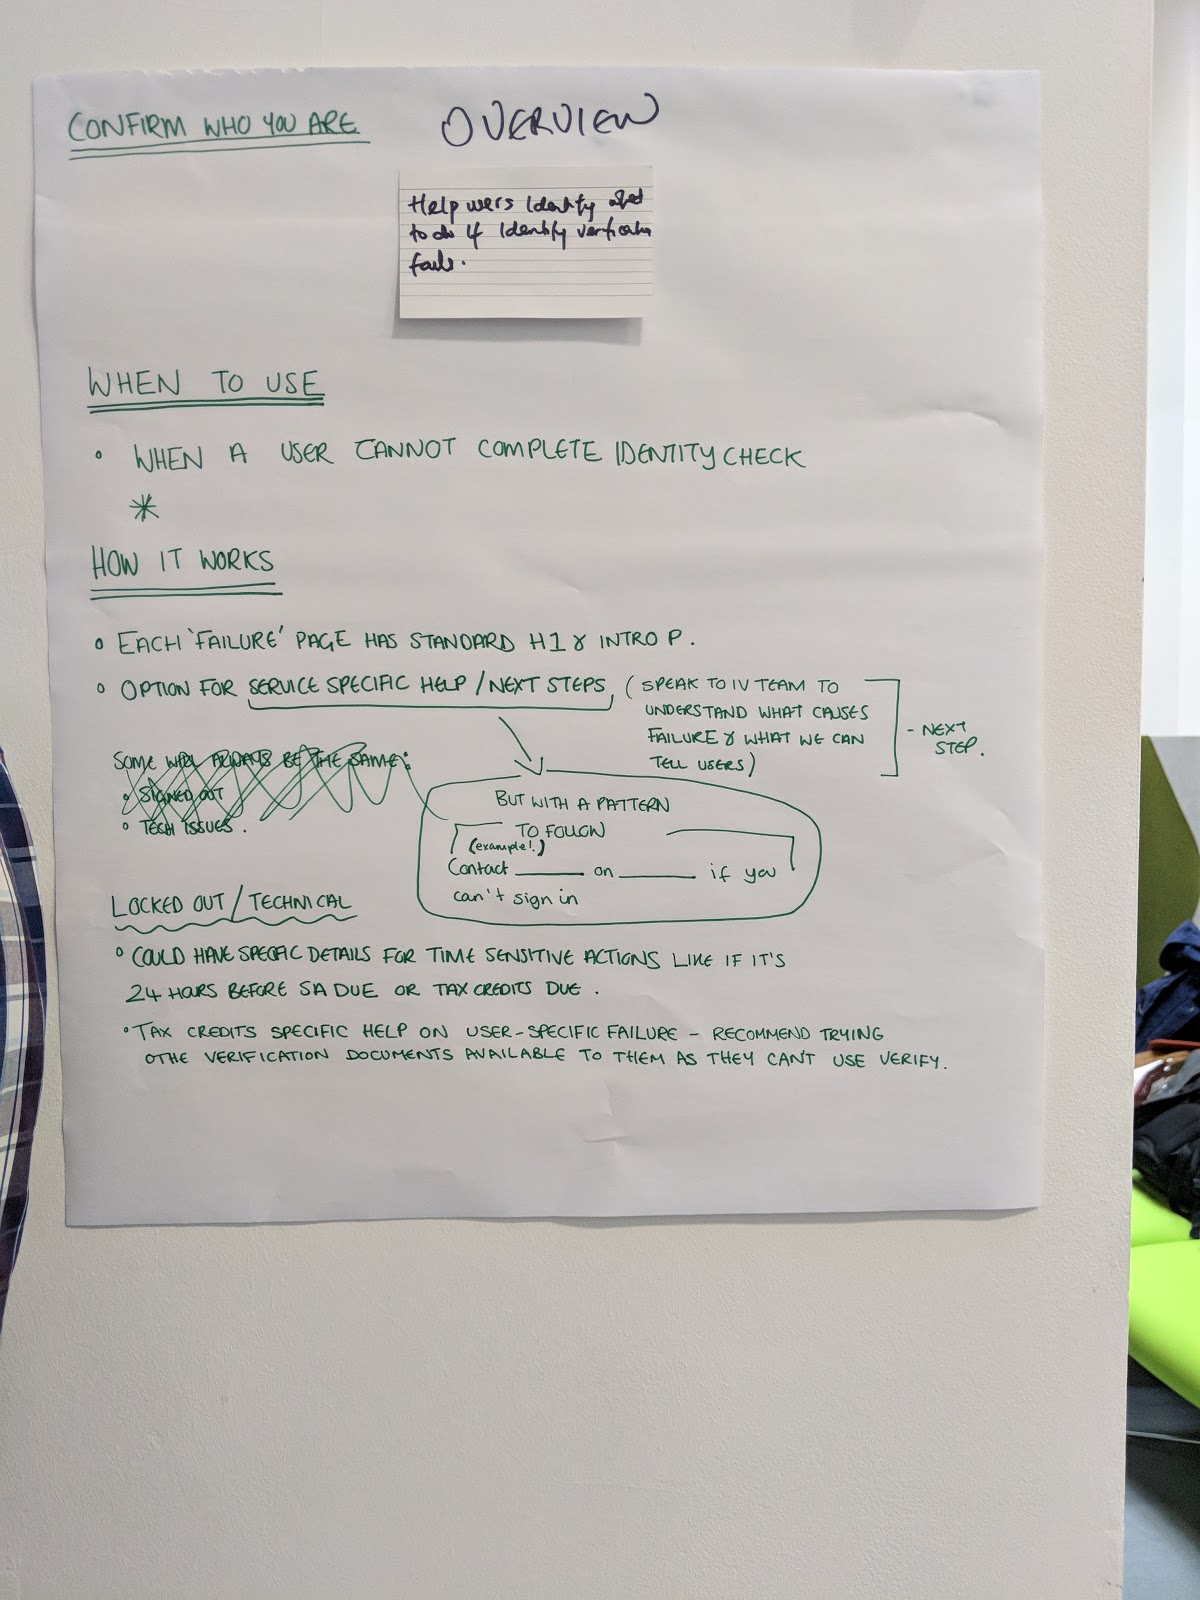 CONFIRM WHO YOU ARE
OVERVIEW
Help users Identify what
to do if Identify verification
fails.
WHEN TO USE
• WHEN A USER CANNOT COMPLETE IDENTITY CHECK
*
HOW IT WORKS
• EACH 'FAILURE' PAGE HAS STANDARD H1 & INTRO P.
• OPTION FOR SERVICE SPECIFIC HELP / NEXT STEPS (SPEAK TO IV TEAM TO
UNDERSTAND WHAT CAUSES
FAILURE & WHAT WE CAN
TELL USERS)
- NEXT
STEP.
SOME WILL ALWAYS BE THE SAME:
• SIGNED OUT
• TECH ISSUES.
BUT WITH A PATTERN
TO FOLLOW
(example!)
Contact ______ on ______ if you
can't sign in
LOCKED OUT / TECHNICAL
• COULD HAVE SPECIFIC DETAILS FOR TIME SENSITIVE ACTIONS LIKE IF IT'S
24 HOURS BEFORE SA DUE OR TAX CREDITS DUE.
• TAX CREDITS SPECIFIC HELP ON USER-SPECIFIC FAILURE - RECOMMEND TRYING
OTHE VERIFICATION DOCUMENTS AVAILABLE TO THEM AS THEY CAN'T USE VERIFY.